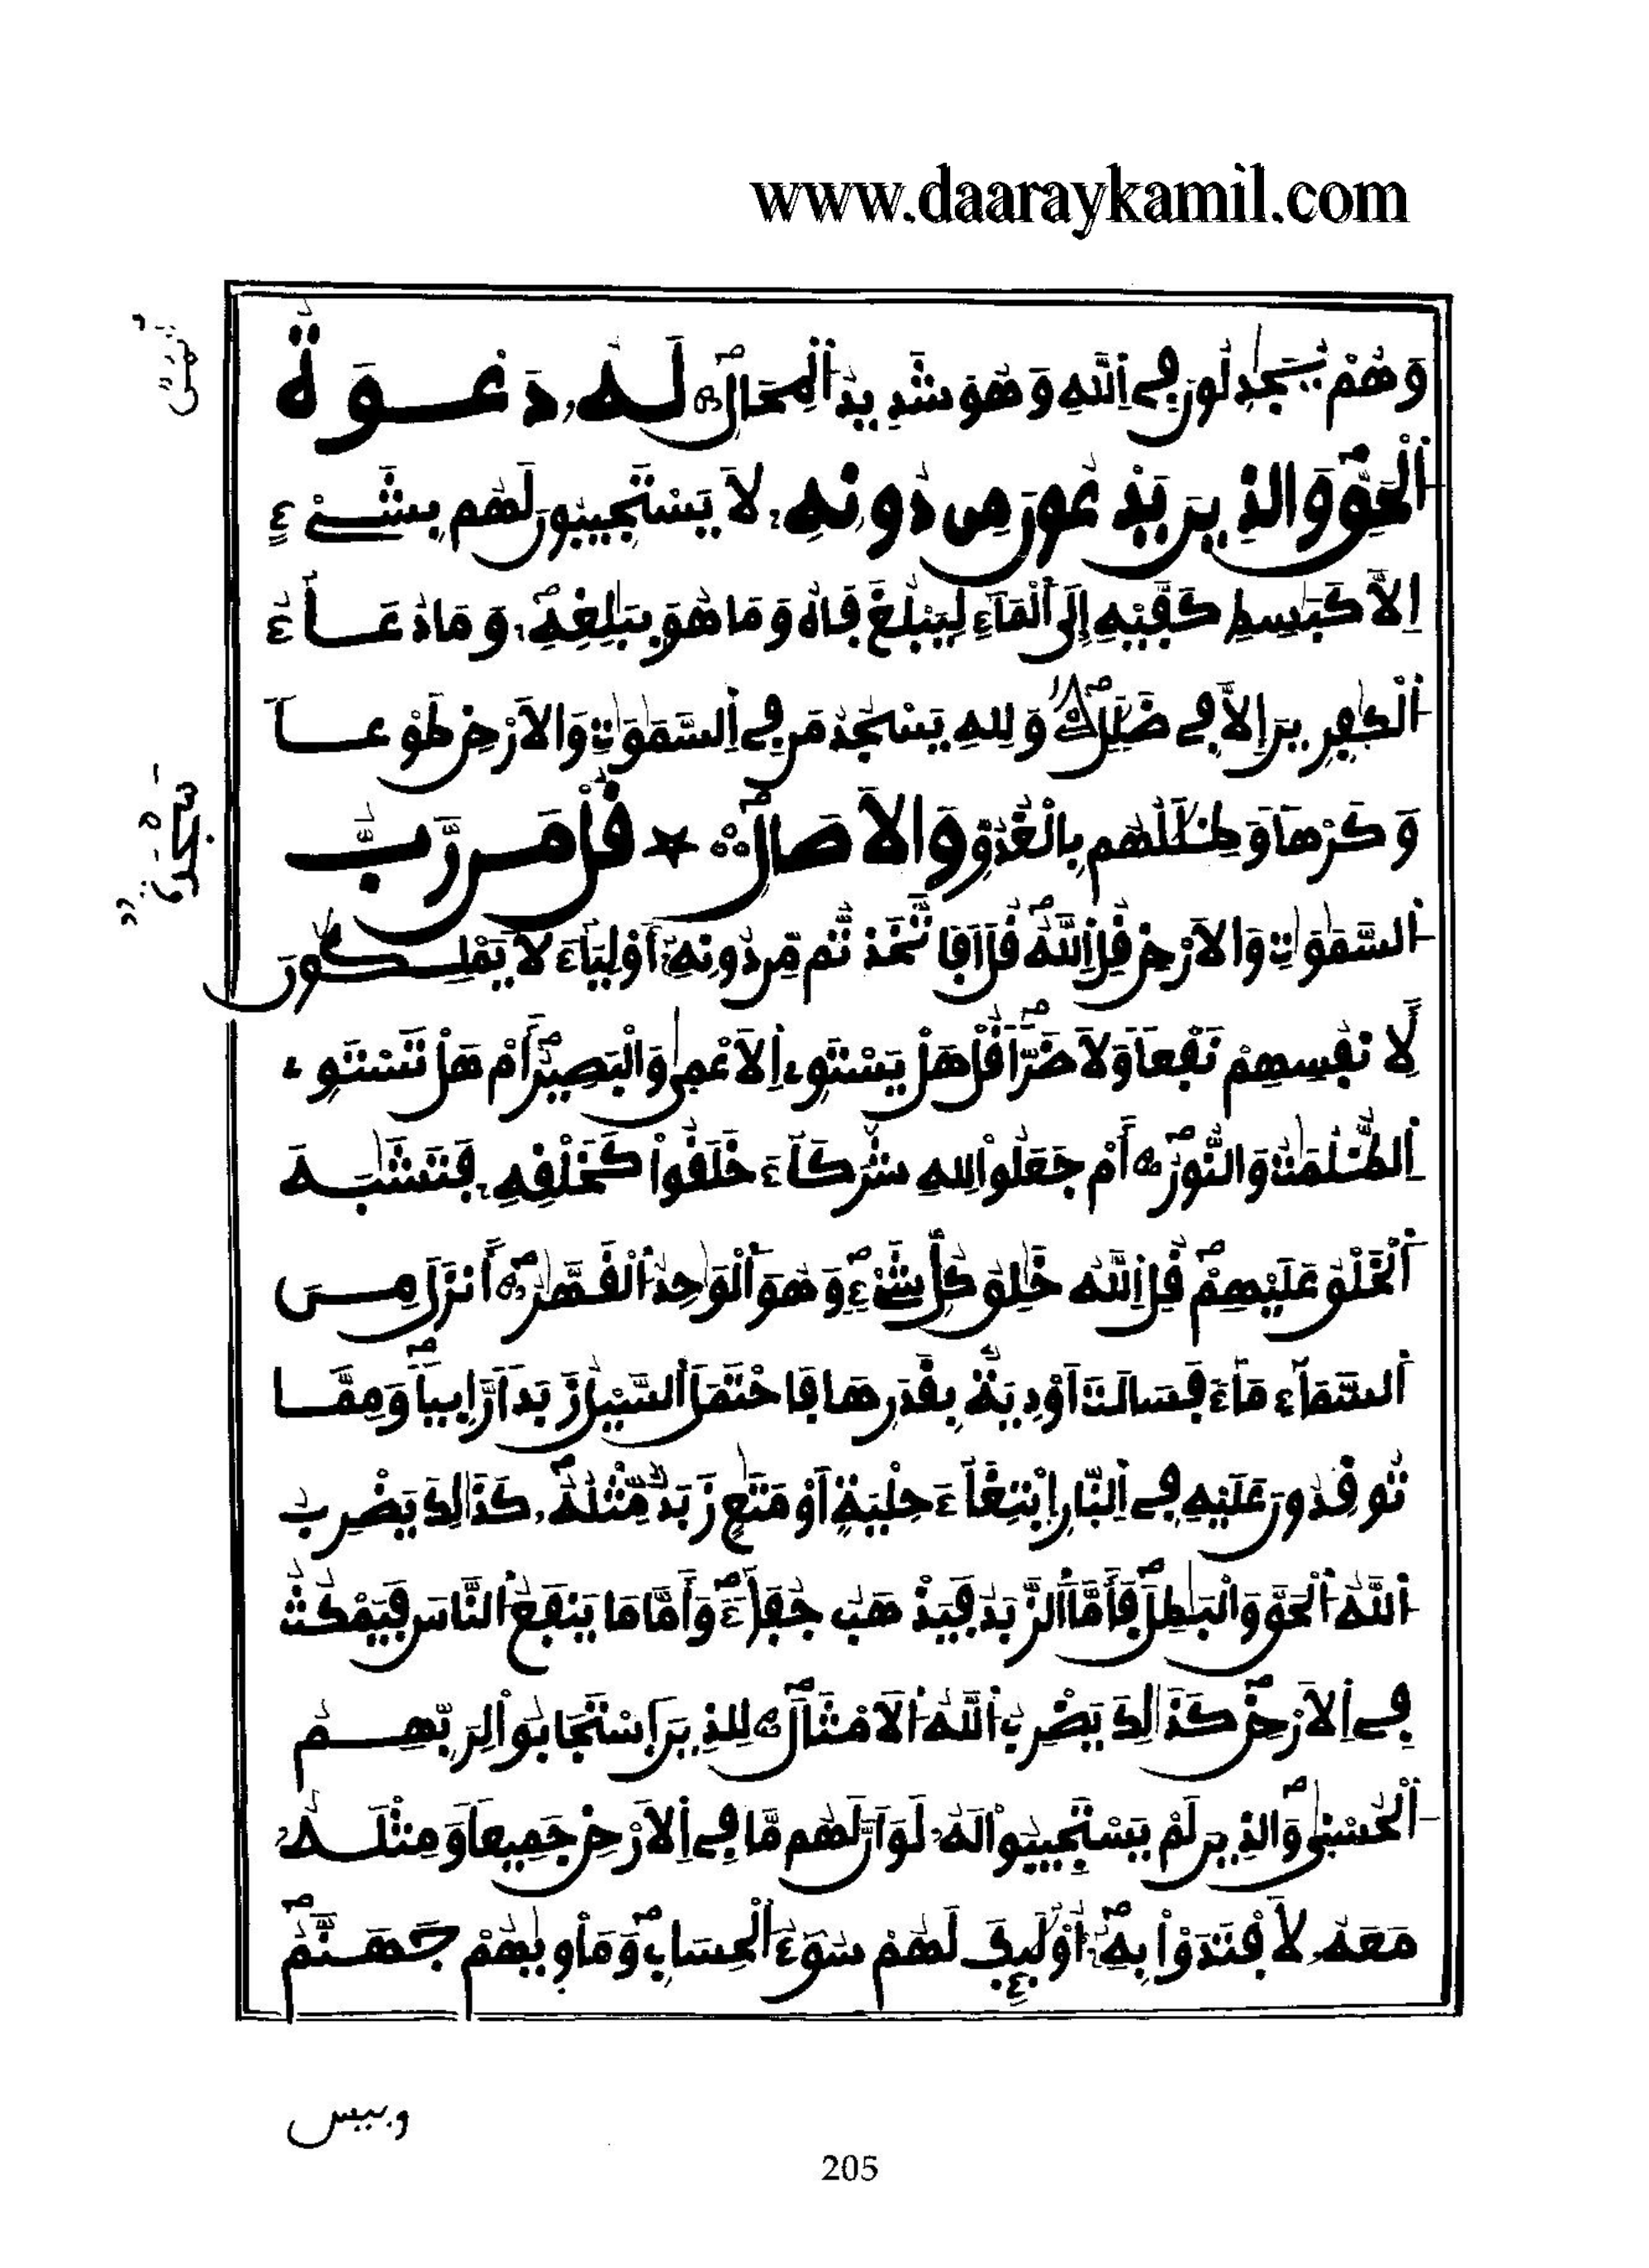 www.daaraykamil.com
وَهُمْ يُجَٰدِلُونَ فِے اِ۬للَّهِ وَهُوَ شَدِيدُ اُ۬لْمِحَالِۖ لَهُۥ دَعْوَةُ
اُ۬لْحَقِّۖ وَالذِينَ يَدْعُونَ مِن دُونِهِۦ لَا يَسْتَجِيبُونَ لَهُم بِشَےْءٍ
اِلَّا كَبَٰسِطِ كَفَّيْهِ إِلَى اَ۬لْمَآءِ لِيَبْلُغَ فَاهُ وَمَا هُوَ بِبَٰلِغِهِۦۖ وَمَا دُعَآءُ
اُ۬لْكٰفِرِينَ إِلَّا فِے ضَلَٰلٖۖ وَلِلهِ يَسْجُدُ مَن فِے اِ۬لسَّمَٰوَٰتِ وَالَارْضِ طَوْعاٗ
وَكَرْهاٗ وَظِلَٰلُهُم بِالْغُدُوِّ وَالَاصَالِۖ قُلْ مَن رَّبُّ
اُ۬لسَّمَٰوَٰتِ وَالَارْضِ قُلِ اِ۬للَّهُۖ قُلَ اَفَاتَّخَذتُّم مِّن دُونِهِۦٓ أَوْلِيَآءَ لَا يَمْلِكُونَ
لِأَنفُسِهِمْ نَفْعاٗ وَلَا ضَرّاٗۖ قُلْ هَلْ يَسْتَوِے اِ۬لَاعْمَىٰ وَالْبَصِيرُۖ أَمْ هَلْ تَسْتَوِے
اِ۬لظُّلُمَٰتُ وَالنُّورُۖ أَمْ جَعَلُواْ لِلهِ شُرَكَآءَ خَلَقُواْ كَخَلْقِهِۦ فَتَشَٰبَهَ
اَ۬لْخَلْقُ عَلَيْهِمْۖ قُلِ اِ۬للَّهُ خَٰلِقُ كُلِّ شَےْءٖۖ وَهُوَ اَ۬لْوَٰحِدُ اُ۬لْقَهَّٰرُۖ أَنزَلَ مِنَ
اَ۬لسَّمَآءِ مَآءٗ فَسَالَتَ اَوْدِيَةُۢ بِقَدَرِهَا فَاحْتَمَلَ اَ۬لسَّيْلُ زَبَداٗ رَّابِياٗۖ وَمِمَّا
تُوقِدُونَ عَلَيْهِ فِے اِ۬لنَّارِ اِ۪بْتِغَآءَ حِلْيَةٍ اَوْ مَتَٰعٖ زَبَدٞ مِّثْلُهُۥۖ كَذَٰلِكَ يَضْرِبُ
اُ۬للَّهُ اُ۬لْحَقَّ وَالْبَٰطِلَۖ فَأَمَّا اَ۬لزَّبَدُ فَيَذْهَبُ جُفَآءٗۖ وَأَمَّا مَا يَنفَعُ اُ۬لنَّاسَ فَيَمْكُثُ
فِے اِ۬لَارْضِۖ كَذَٰلِكَ يَضْرِبُ اُ۬للَّهُ اُ۬لَامْثَالَۖ لِلذِينَ اَ۪سْتَجَابُواْ لِرَبِّهِمُ
اُ۬لْحُسْنَىٰۖ وَالذِينَ لَمْ يَسْتَجِيبُواْ لَهُۥ لَوَ اَنَّ لَهُم مَّا فِے اِ۬لَارْضِ جَمِيعاٗ وَمِثْلَهُۥ
مَعَهُۥ لَافْتَدَوْاْ بِهِۦٓۖ أُوْلَٰٓئِكَ لَهُمْ سُوٓءُ اُ۬لْحِسَابِۖ وَمَأْوٜيٰهُمْ جَهَنَّمُۖ
ثمن
سجدة
وبيس
205